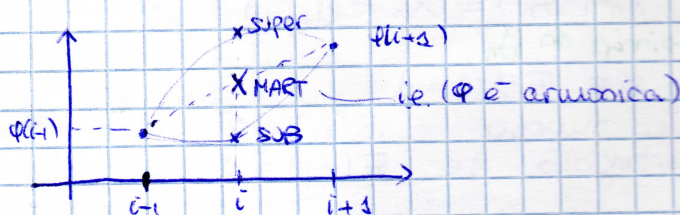 super
φ(i+1)
MART i.e. (φ è armonica)
φ(i-1)
SUB
i-1 i i+1